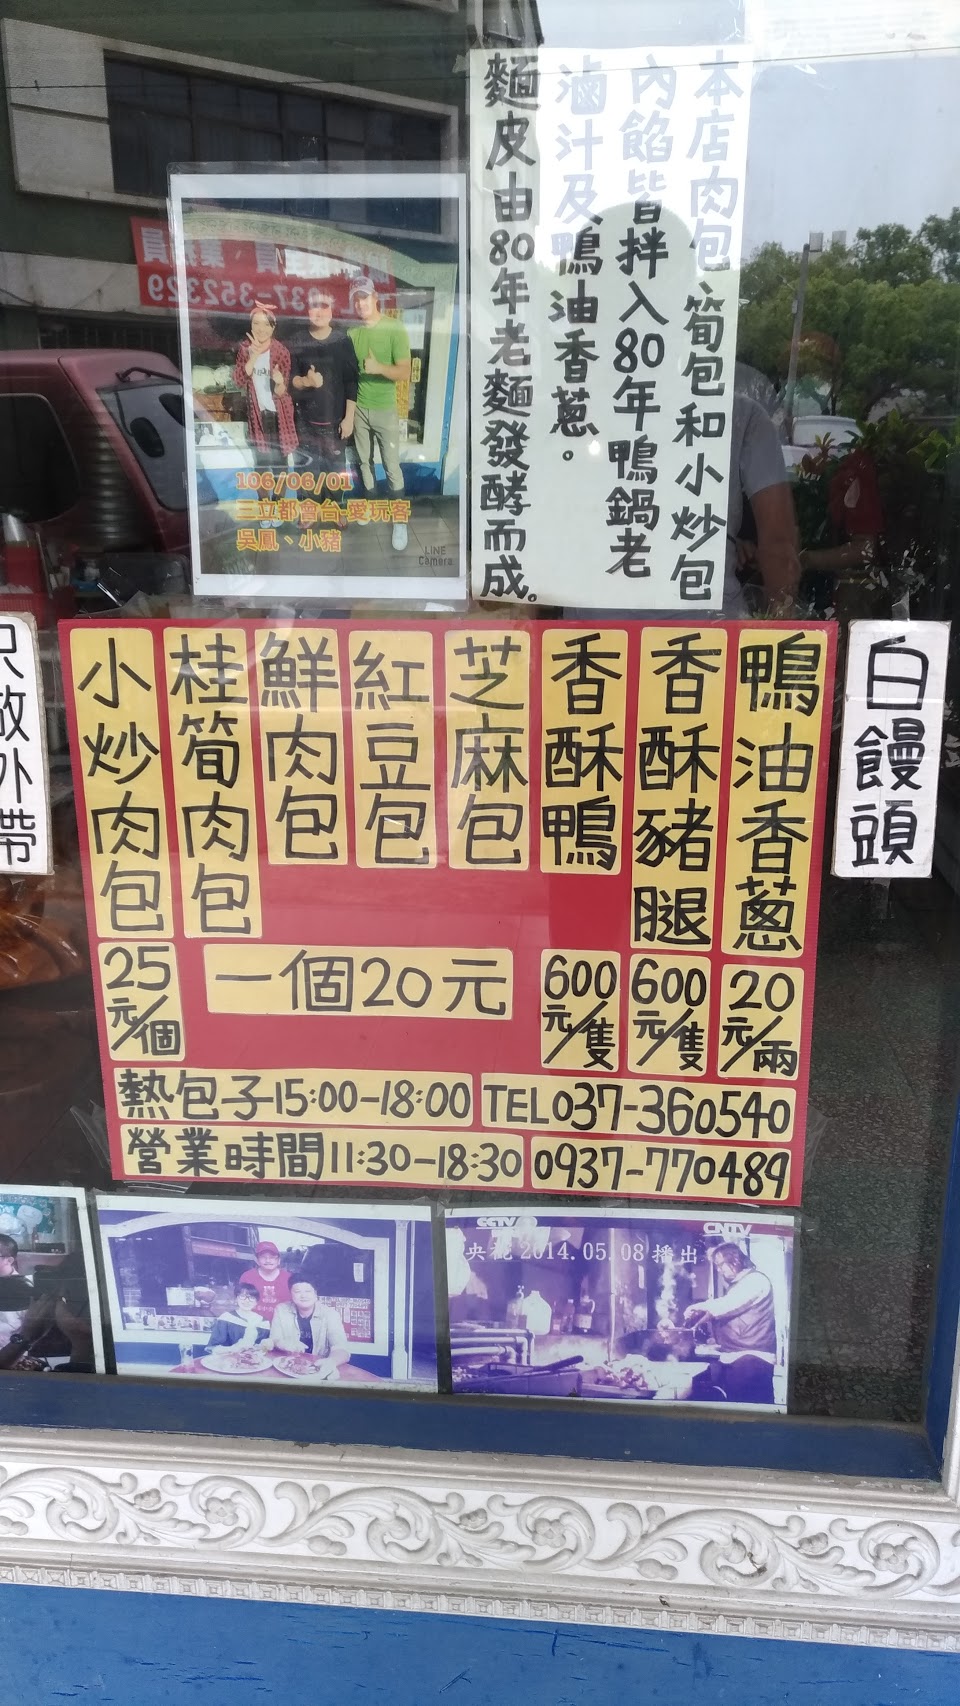 本店肉包、筍包和小炒包
內餡皆拌入80年鴨鍋老
滷汁及鴨油香蔥。
麵皮由80年老麵發酵而成。
106/06/01
三立都會台-愛玩客
吳鳳、小豬
LINE
Camera
037-352329
白饅頭
鴨油香蔥
20元/兩
香酥豬腿
600元/隻
香酥鴨
600元/隻
芝麻包
紅豆包
鮮肉包
桂筍肉包
一個20元
小炒肉包
25元/個
熱包子15:00-18:00
TEL037-360540
營業時間11:30-18:30
0937-770489
CCTV
CNTV
央視2014.05.08播出